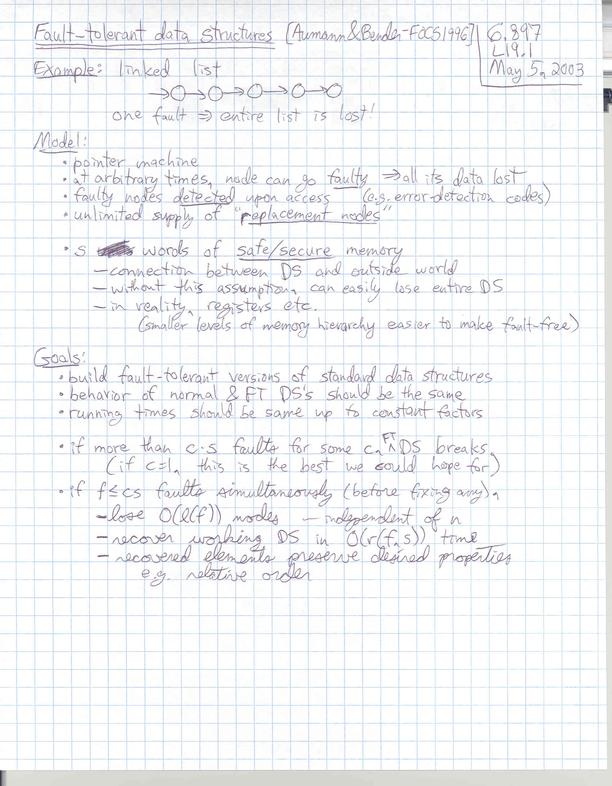 Fault-tolerant data structures [Aumann & Bender - FOCS 1996]
6.897
L19.1
May 5, 2003
Example: linked list
one fault ⇒ entire list is lost!
Model:
• pointer machine
• at arbitrary times, node can go faulty ⇒ all its data lost
• faulty nodes detected upon access (e.g. error-detection codes)
• unlimited supply of "replacement nodes"
• s words of safe/secure memory
– connection between DS and outside world
– without this assumption, can easily lose entire DS
– in reality, registers etc.
(smaller levels of memory hierarchy easier to make fault-free)
Goals:
• build fault-tolerant versions of standard data structures
• behavior of normal & FT DS's should be the same
• running times should be same up to constant factors
• if more than c·s faults for some c, FT DS breaks
(if c=1, this is the best we could hope for)
• if f ≤ cs faults simultaneously (before fixing any),
– lose O(l(f)) nodes – independent of n
– recover working DS in O(r(f,s)) time
– recovered elements preserve desired properties
e.g. relative order